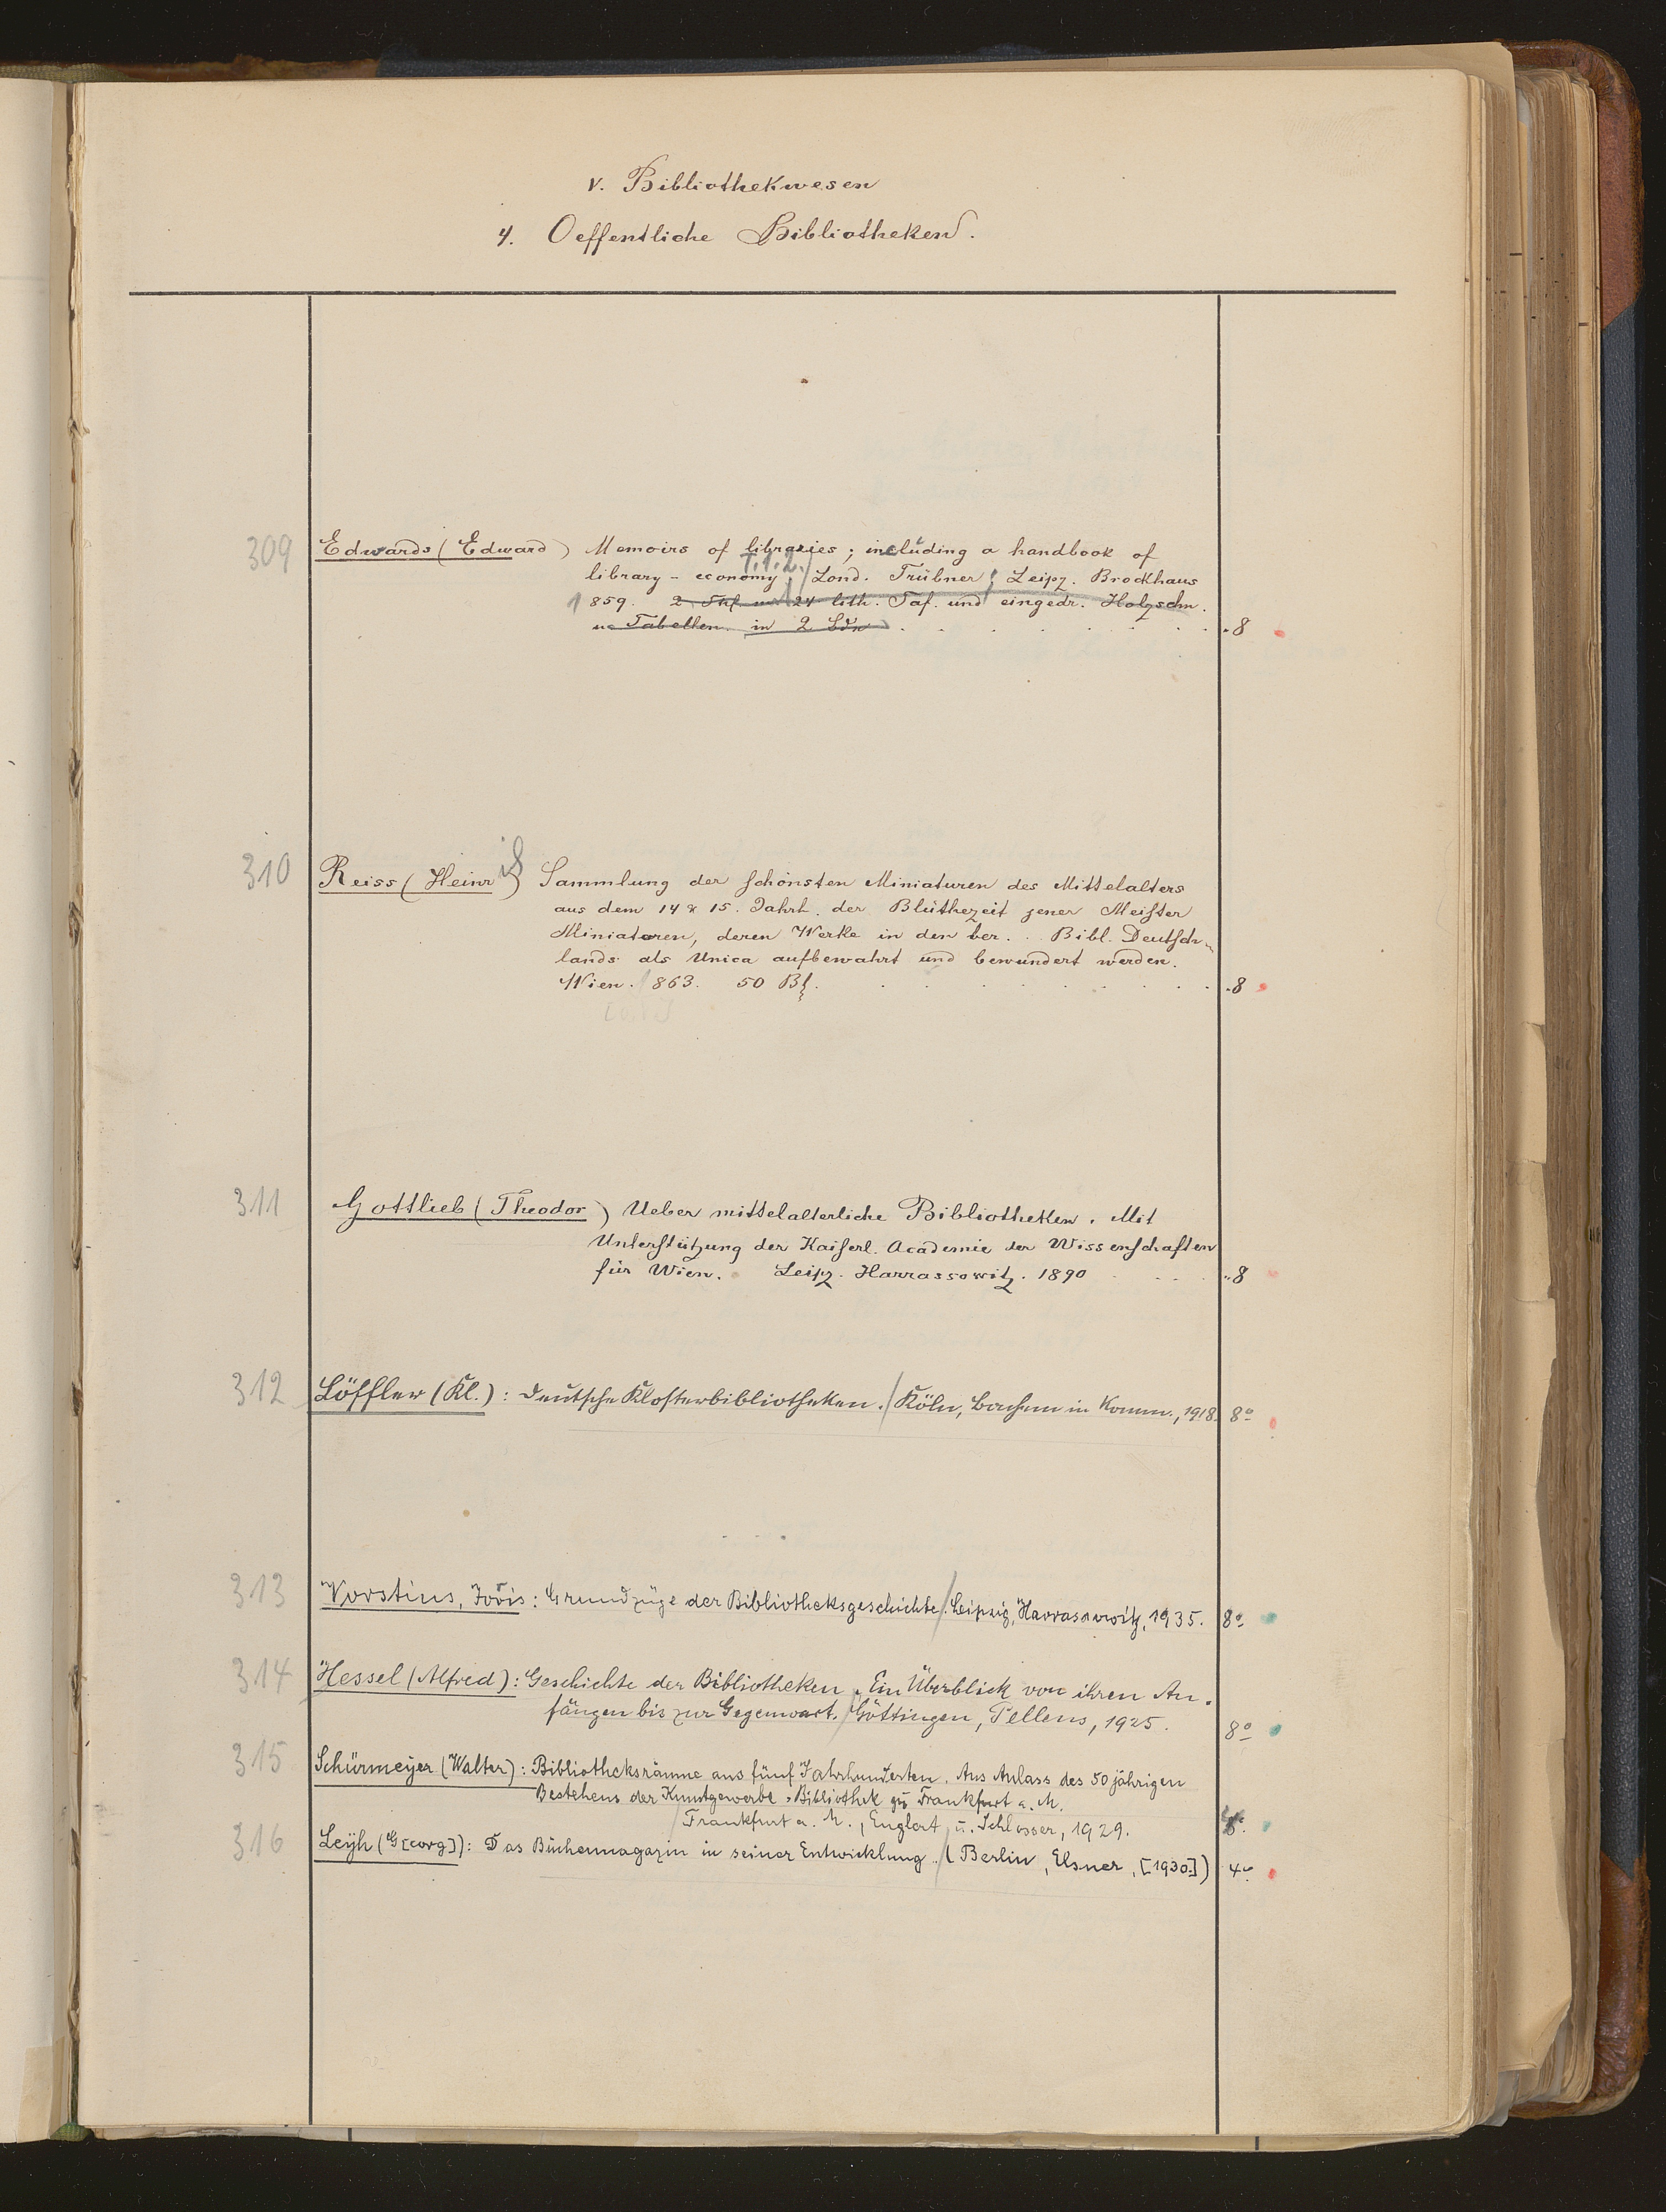 V. Bibliothekwesen
4. Oeffentliche Bibliotheken.
309 Edwards (Edward) Memoirs of libraries; including a handbook of
T.1.2.
library-economy. / Lond. Trübner; Leipz. Brockhaus
1859. 2 Thl. m. 24 lith. Taf. und eingedr. Holzschn.
u. Tabellen. in 2 Bdn . . . . . . . 8
310 Reiss (Heinrich) Sammlung der schönsten Miniaturen des Mittelalters
aus dem 14 & 15. Jahrh. der Blüthezeit jener Meister
Miniatoren, deren Werke in den ber. . . Bibl. Deutsch-
lands als Unica aufbewahrt und bewundert werden.
Wien. 1863. 50 Bl. . . . . . . . 8
311 Gottlieb (Theodor) Ueber mittelalterliche Bibliotheken. Mit
Unterstützung der Kaiserl. Academie der Wissenschaften
für Wien. Leipz. Harrassowitz. 1890 . . . . 8
312 Löffler (Kl.): Deutsche Klosterbibliotheken. / Köln, Bachem in Komm., 1918. 8°
313 Vorstius, Joris: Grundzüge der Bibliotheksgeschichte. / Leipzig, Harrassowitz, 1935. 8°
314 Hessel (Alfred): Geschichte der Bibliotheken. Ein Überblick von ihren An-
fängen bis zur Gegenwart. / Göttingen, Pellens, 1925. 8°
315 Schürmeyer (Walter): Bibliotheksräume aus fünf Jahrhunderten. Aus Anlass des 50 jährigen
Bestehens der Kunstgewerbe-Bibliothek zu Frankfurt a. M.
/ Frankfurt a. M., Englert u. Schlosser, 1929.
316 Leyh (G[eorg]): Das Büchermagazin in seiner Entwicklung. / (Berlin, Elsner, [1930.]) 4°